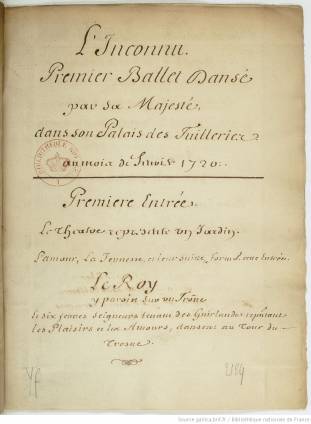 L'Inconnu.
Premier Ballet Dansé
par sa Majesté,
dans son Palais des Tuilleries
au mois de 1720.
Premiere Entrée.
Le Theatre represente un Jardin.
L'amour, La Jeunesse, et leur suite, form. cette Entrée.
Le Roy
y paroit sur un Trône
et dix jeunes seigneurs tenant des Guirlandes
les Plaisirs et les Amours, dansent au Tour du
Trosne.
Source gallica.bnf.fr / Bibliothèque nationale de France